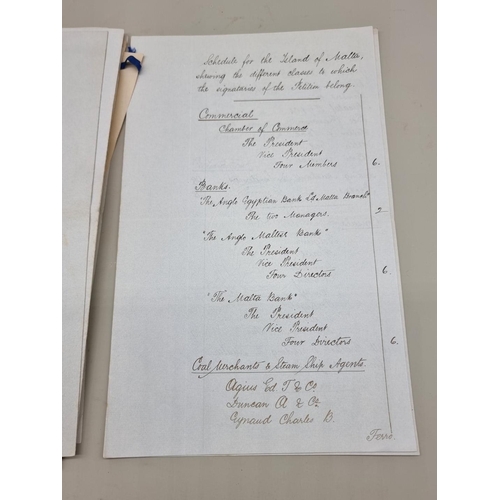 Schedule for the Island of Malta,
shewing the different classes to which
the signatories of the Petition belong.
Commercial
Chamber of Commerce
The President
Vice President
Four Members 6.
Banks.
"The Anglo Egyptian Bank Ld Malta Branch"
The two Managers. 2
"The Anglo Maltese Bank"
The President
Vice President
Four Directors 6
"The Malta Bank"
The President
Vice President
Four Directors 6.
Coal Merchants & Steam Ship Agents.
Agius Ed. T & Co.
Duncan A & Co.
Eynaud Charles B.